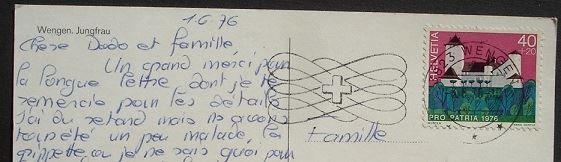 1.6.76
Wengen. Jungfrau
Chère Dodo et famille,
Un grand merci pour
la longue lettre dont je te
remercie pour les détails
j'ai du retard mais ns avons
tous été un peu malade, la
grippette ou je ne sais quoi pour
Famille
HELVETIA
40
+20
PRO PATRIA 1976
WENGEN